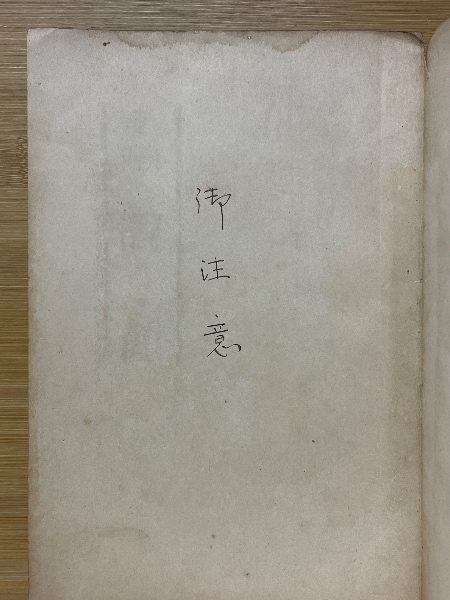 御注意